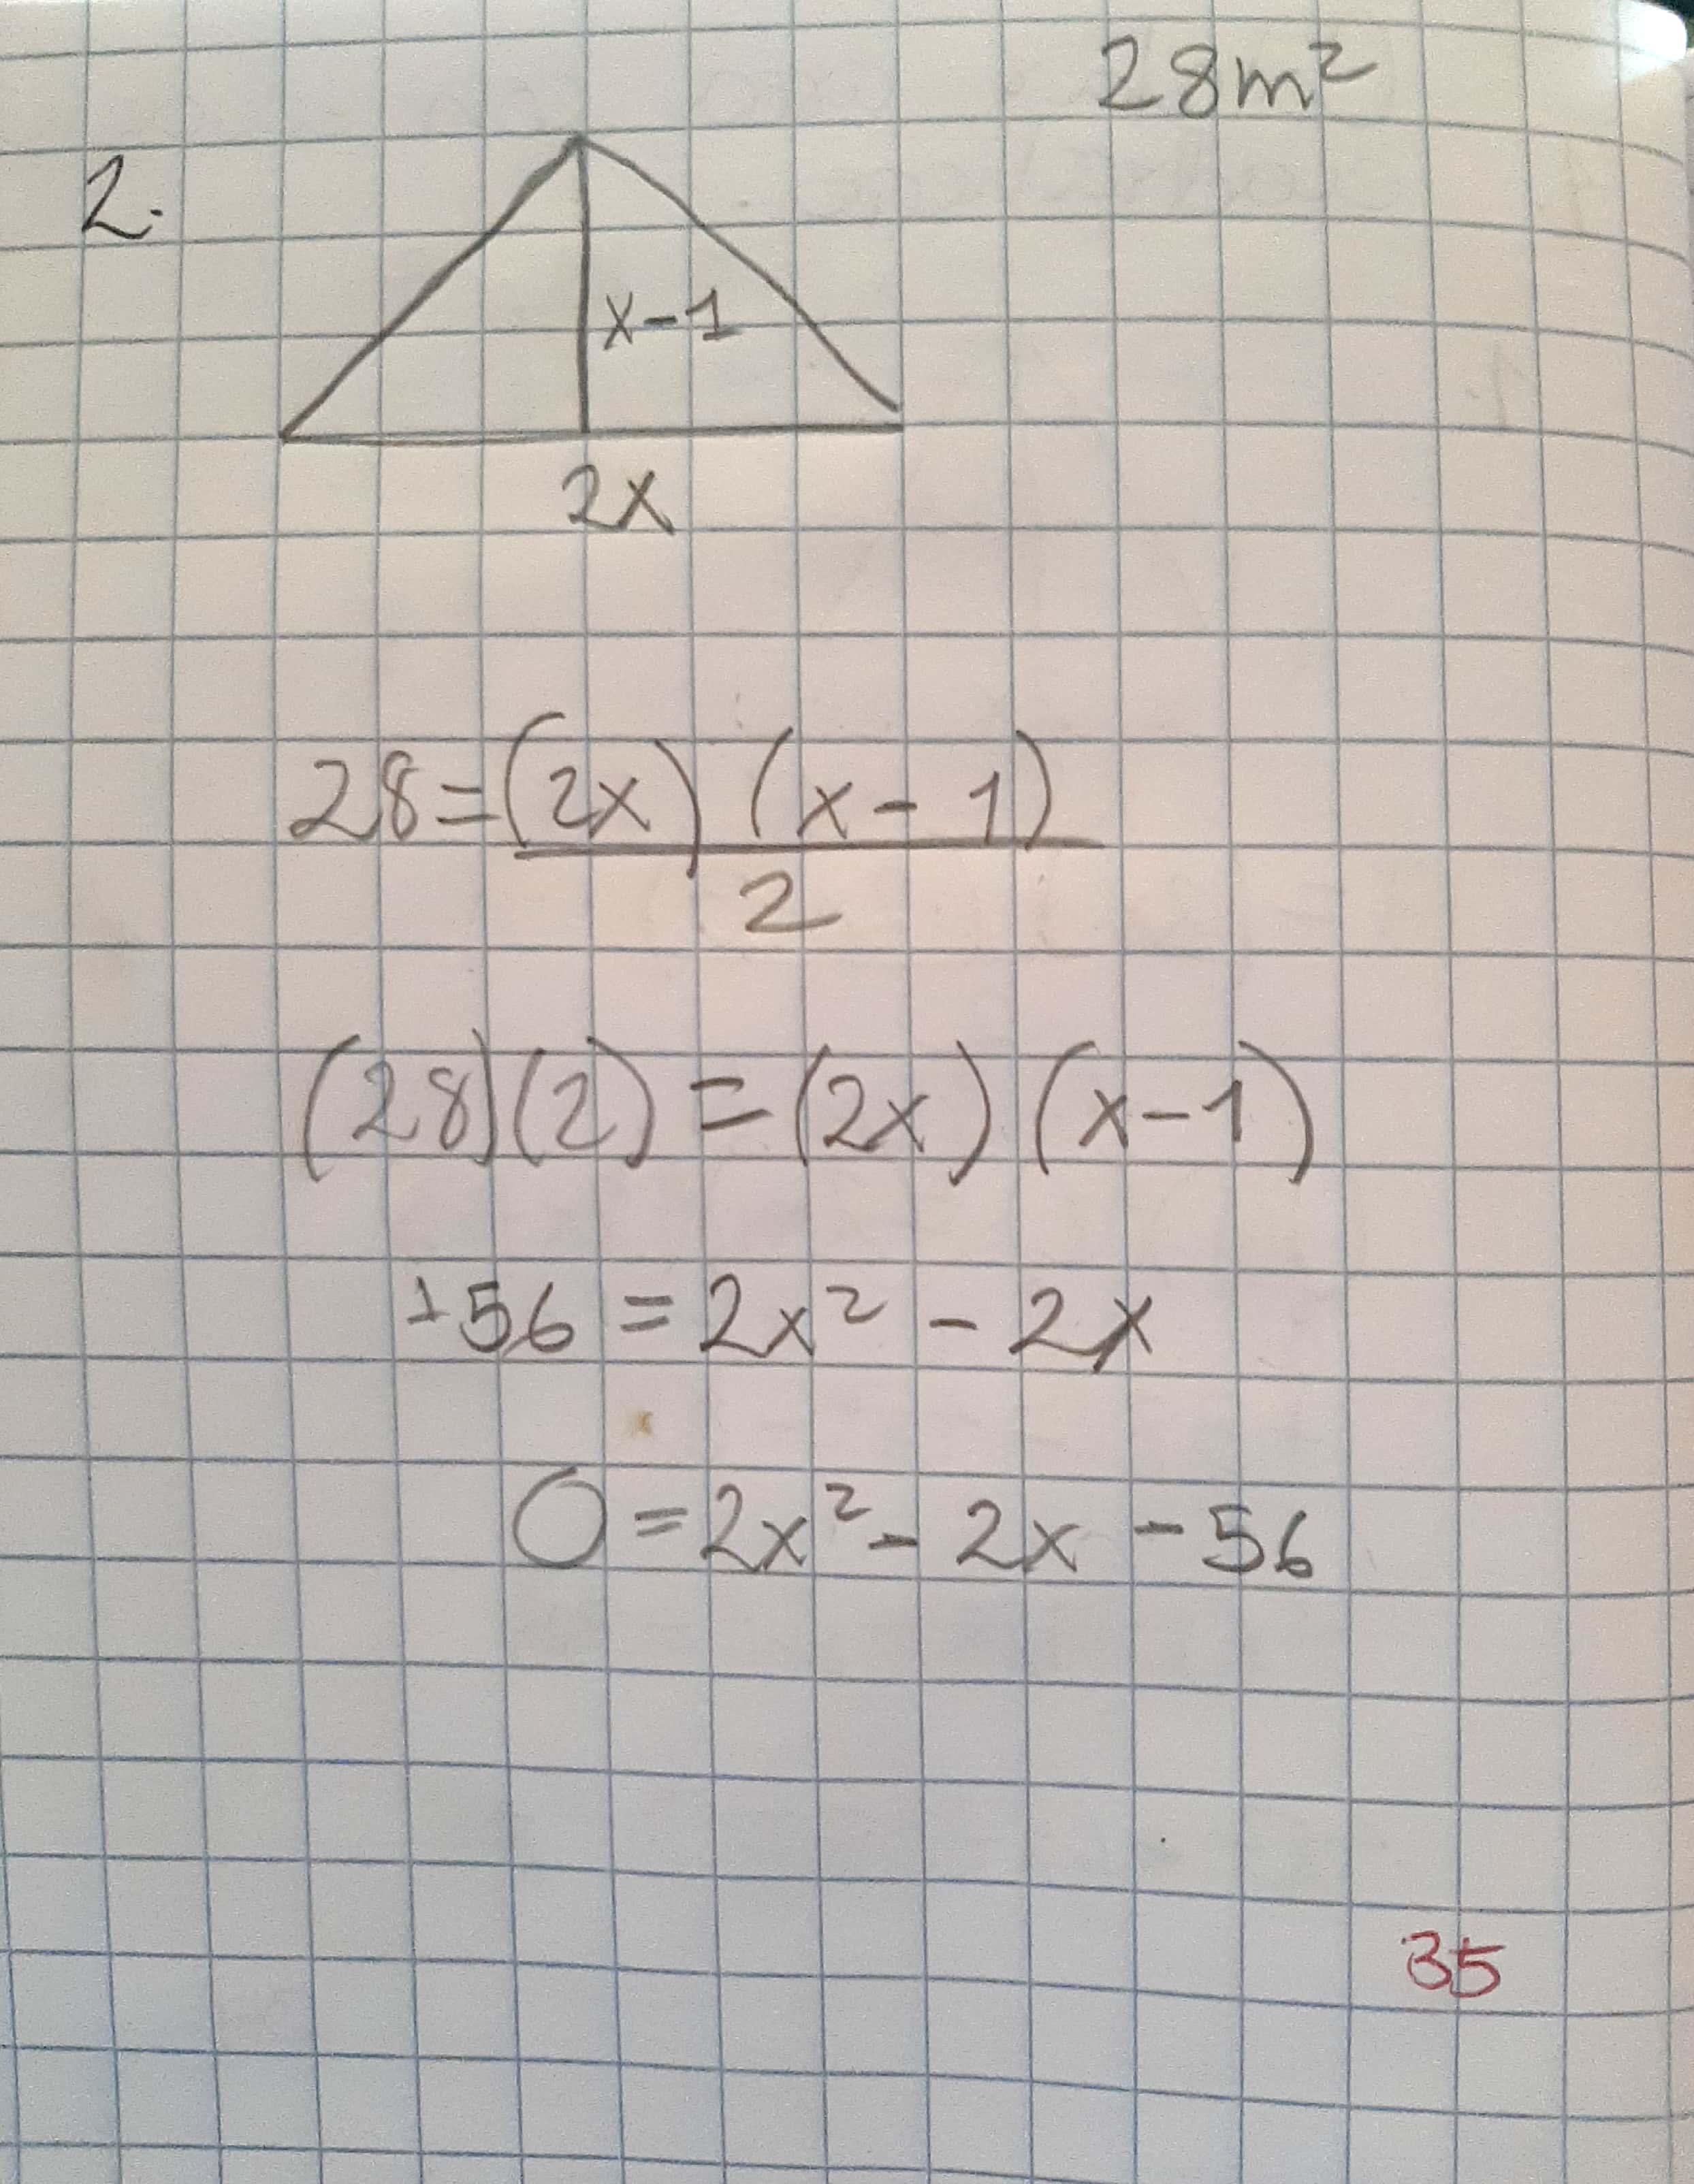 28m²
2.
x-1
2x
28=(2x) (x-1)
2
(28)(2) = (2x) (x-1)
+56 = 2x² - 2x
0=2x²- 2x -56
35